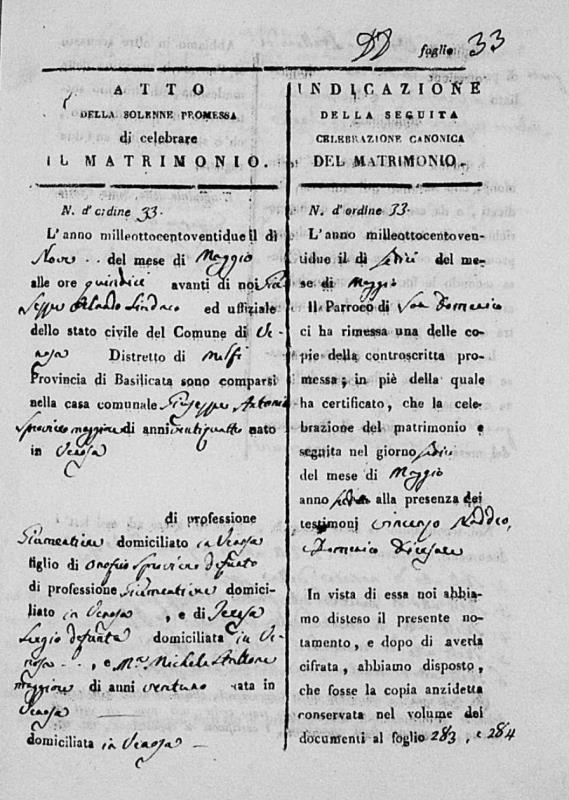 foglio 33
ATTO
DELLA SOLENNE PROMESSA
di celebrare
IL MATRIMONIO.
N. d'ordine 33.
L'anno milleottocentoventidue il di
Nove del mese di Maggio
alle ore quindici avanti di noi Giu
seppe Orlando Sindaco ed uffiziale
dello stato civile del Comune di Ve-
nosa Distretto di Melfi
Provincia di Basilicata sono comparsi
nella casa comunale Giuseppe Antonio
Sproviero maggiore di anni ventiquattro nato
in Venosa
di professione
Giumentiere domiciliato in Venosa
figlio di Onofrio Sproviero defunto
di professione Giumentiere domici-
liato in Venosa , e di Teresa
defunta domiciliata in Ve-
nosa , e M.a Michela
maggiore di anni ventuno nata in
Venosa
domiciliata in Venosa
INDICAZIONE
DELLA SEGUITA
CELEBRAZIONE CANONICA
DEL MATRIMONIO.
N. d'ordine 33.
L'anno milleottocentoven-
tidue il di sedici del me-
se di Maggio
Il Parroco di San Domenico
ci ha rimessa una delle co-
pie della controscritta pro-
messa; in piè della quale
ha certificato, che la cele-
brazione del matrimonio e
seguita nel giorno sedici
del mese di Maggio
anno alla presenza dei
testimonj Vincenzo Naddeo,
e Domenico
In vista di essa noi abbia-
mo disteso il presente no-
tamento, e dopo di averla
cifrata, abbiamo disposto,
che fosse la copia anzidetta
conservata nel volume dei
documenti al foglio 283, e 284